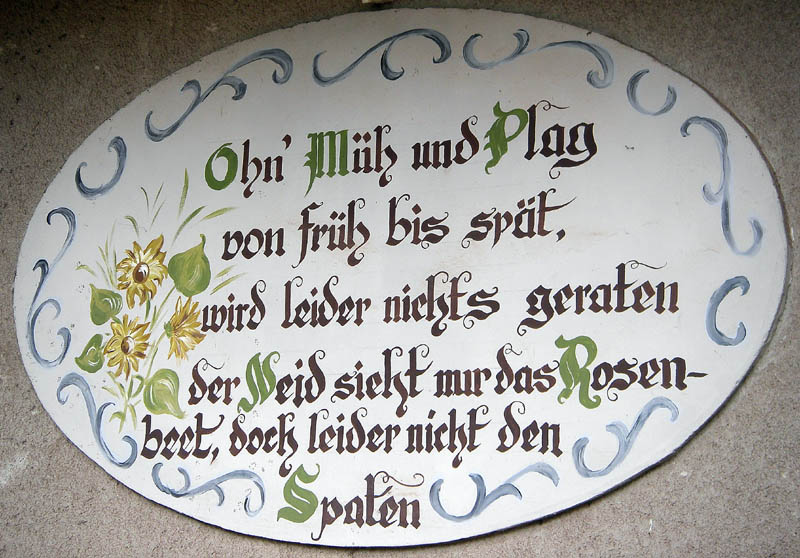 Ohn' Müh und Plag
von früh bis spät,
wird leider nichts geraten
der Neid sieht nur das Rosen-
beet, doch leider nicht den
Spaten